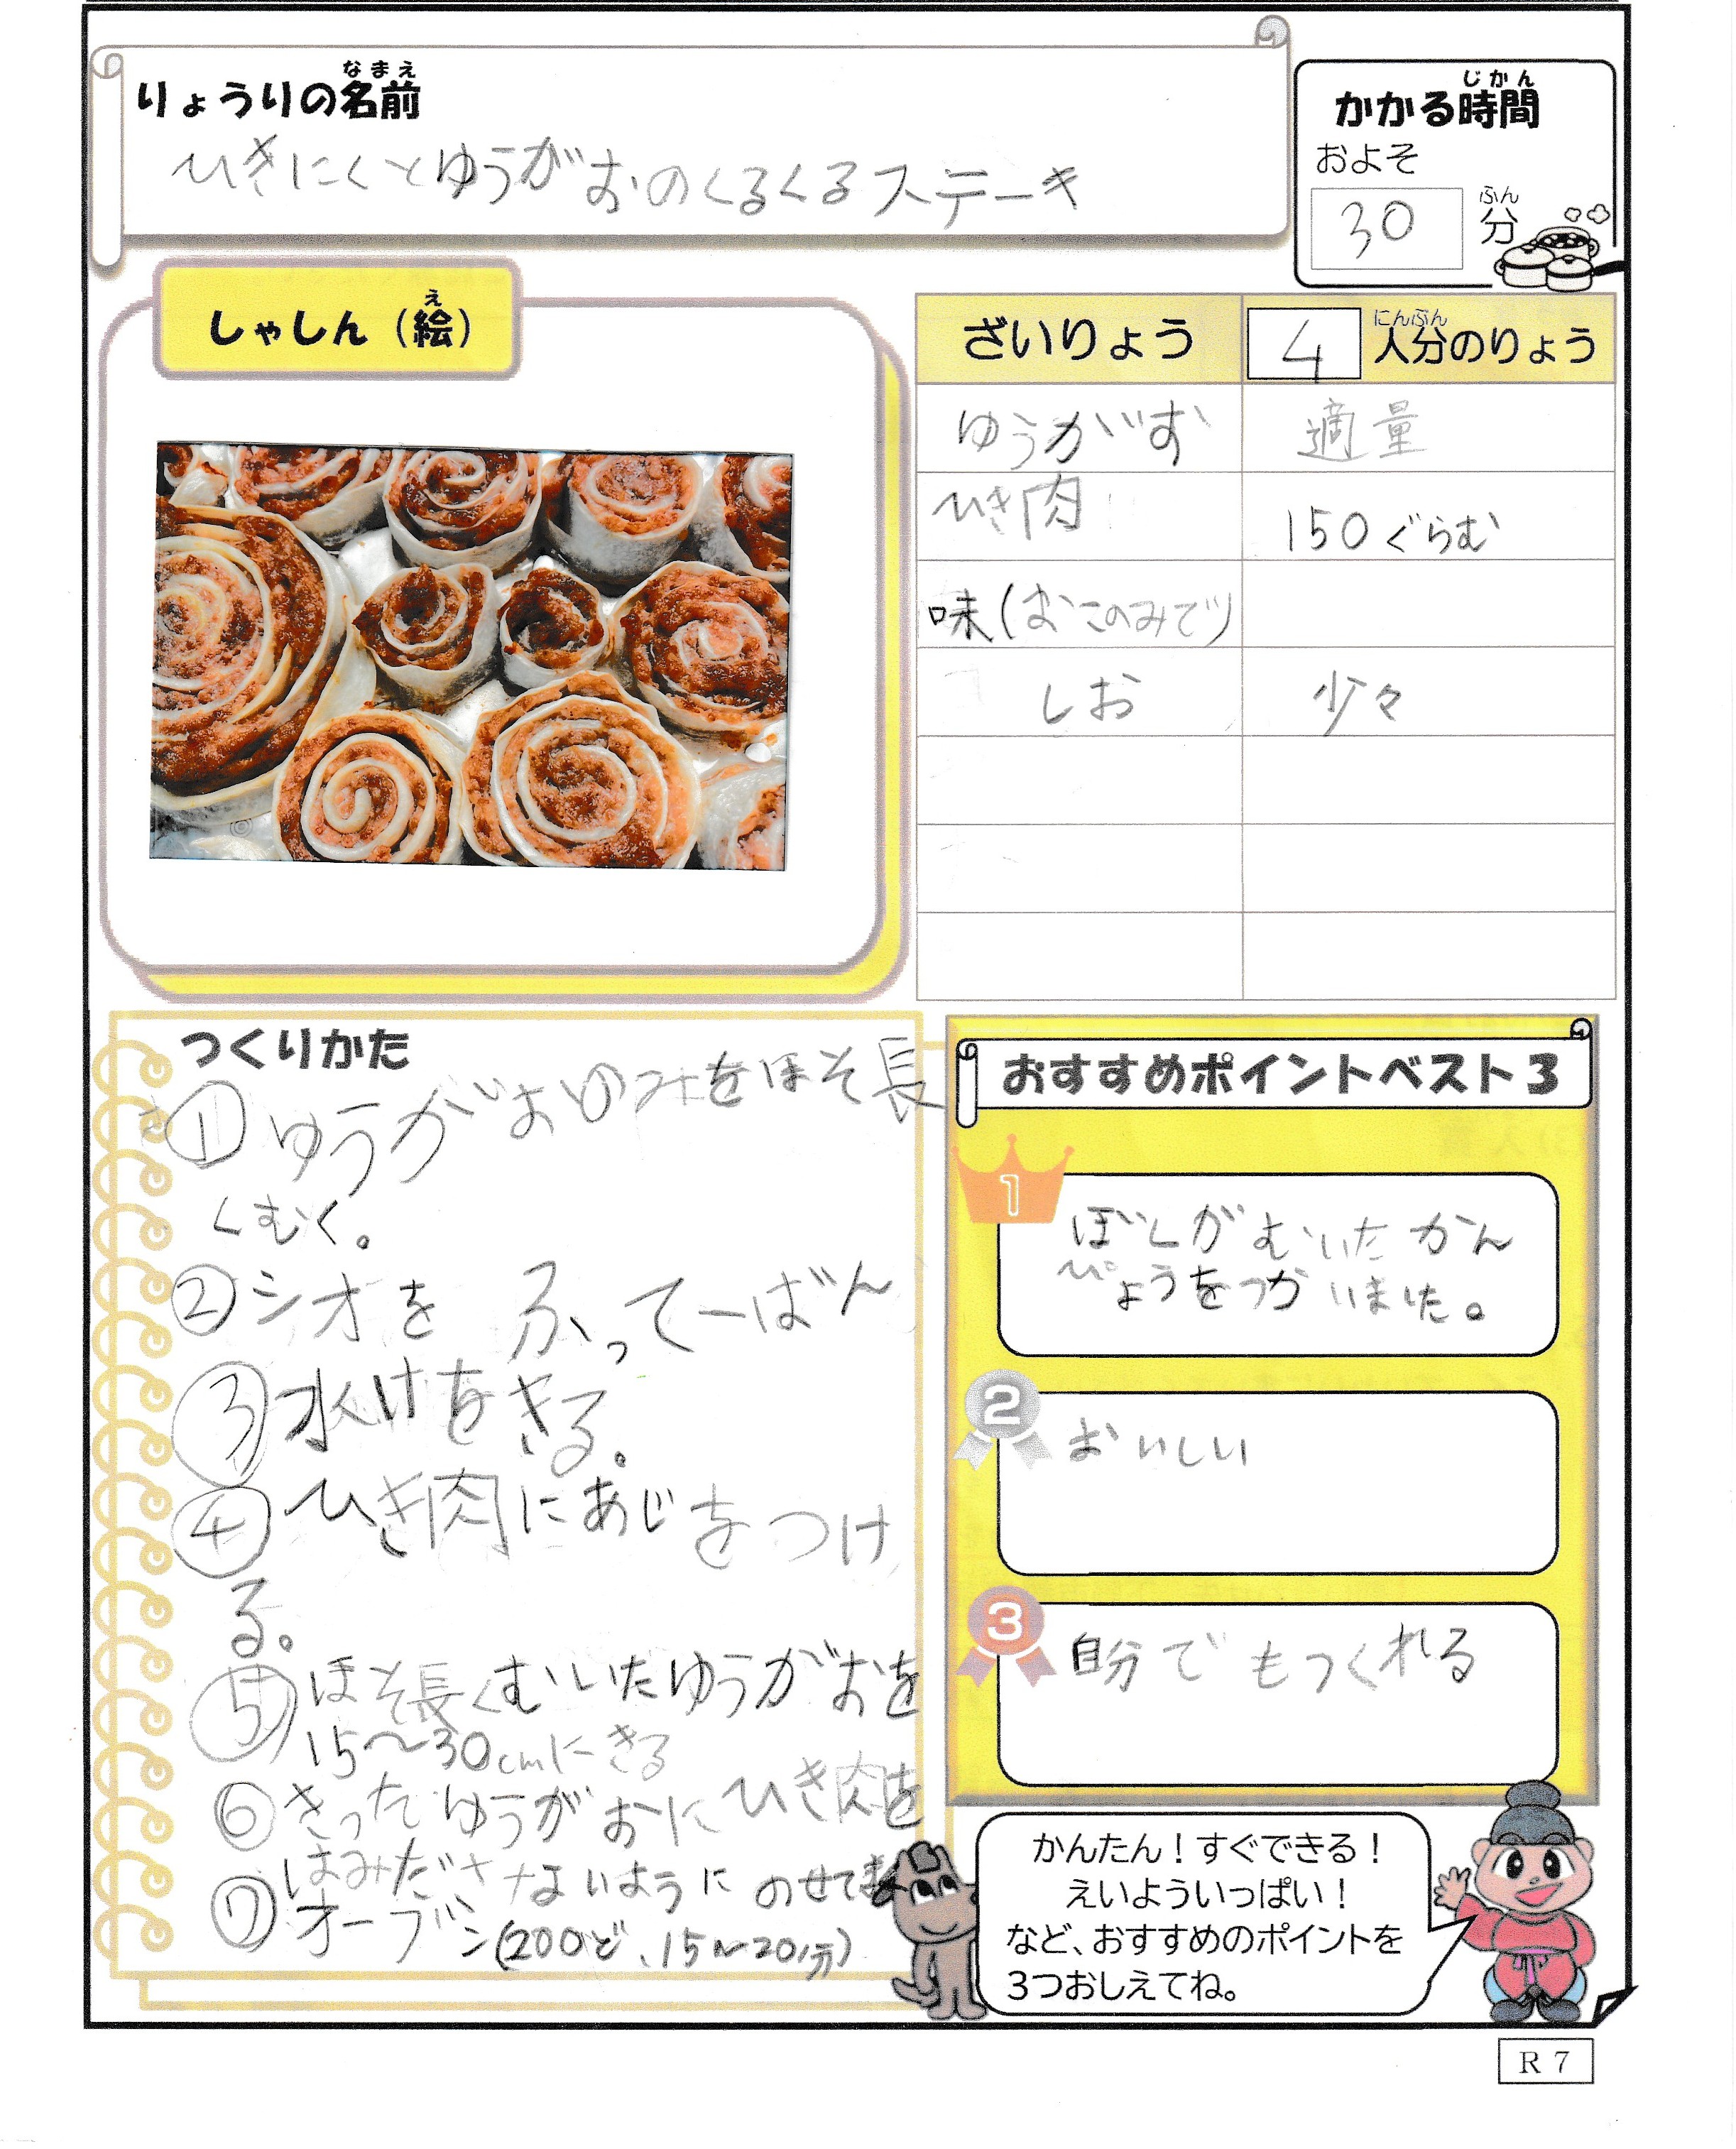 りょうりの名前
なまえ
ひきにくとゆうがおのくるくるステーキ
かかる時間
じかん
およそ
30 分
ふん
しゃしん（絵）
え
ざいりょう 4 人分のりょう
にんぶん
ゆうがお 適量
ひき肉 150ぐらむ
味(おこのみで)
しお 少々
つくりかた
① ゆうがおのみをほそ長
くむく。
② シオを ふって一ばん
③ 水けをきる。
④ ひき肉にあじをつけ
る。
⑤ ほそ長くむいたゆうがおを
15〜30cmにきる
⑥ きったゆうがおにひき肉を
はみださないように のせてま
⑦ オーブン(200ど、15〜20分)
おすすめポイントベスト3
1
ぼくがむいたかん
ぴょうをつかいました。
2
おいしい
3
自分でもつくれる
かんたん！すぐできる！
えいよういっぱい！
など、おすすめのポイントを
3つおしえてね。
R 7